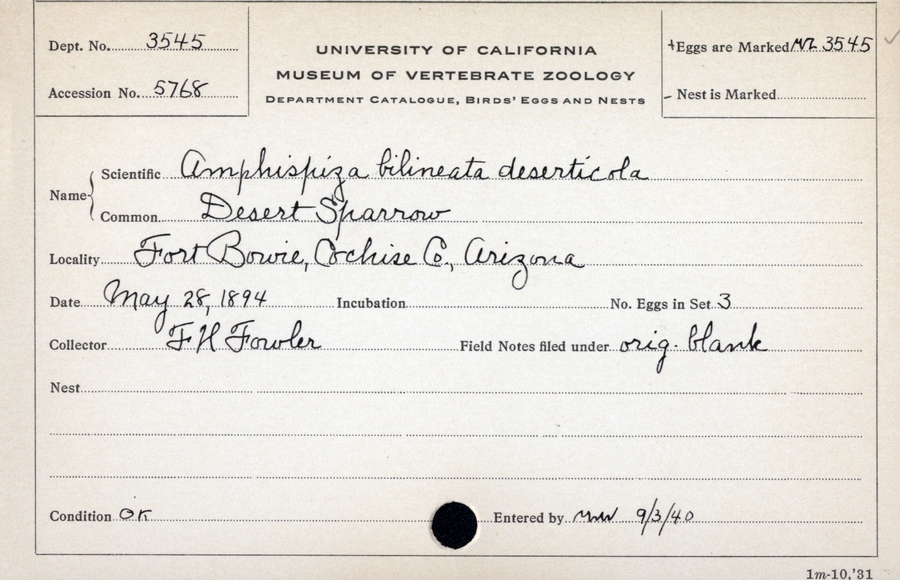 Dept. No. 3545
Accession No. 5768
UNIVERSITY OF CALIFORNIA
MUSEUM OF VERTEBRATE ZOOLOGY
DEPARTMENT CATALOGUE, BIRDS' EGGS AND NESTS
+Eggs are Marked 3545 ✓
- Nest is Marked
Name { Scientific Amphispiza bilineata deserticola
Common Desert Sparrow
Locality Fort Bowie, Cochise Co., Arizona
Date May 28, 1894 Incubation No. Eggs in Set 3
Collector F H Fowler Field Notes filed under orig. blank
Nest
Condition OK Entered by 9/3/40
1m-10,'31